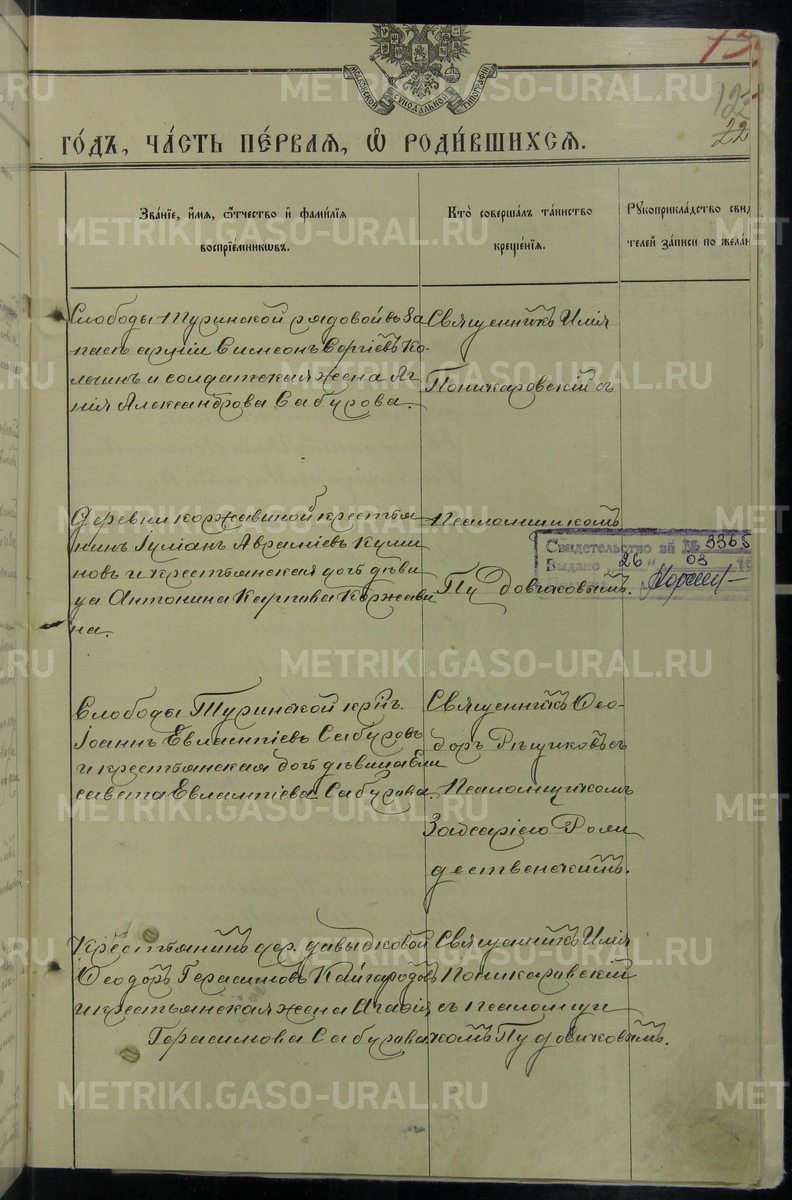 МОСКОВСКОЙ СѴНОДАЛЬНОЙ ТИПОГРАФІИ
13
122
22
ГО́ДЪ, ЧА́СТЬ ПЕ́РВАЯ, Ѡ҆ РОДИ́ВШИХСЯ.
Зва́нїе, и҆́мѧ, ѻ҆́тчество и҆ фами́лїѧ
воспрїе́мникωвъ.
Кто̀ соверша́лъ та́инство
креще́нїѧ.
Рꙋкоприкла́дство свид
телей за́писи по жела́н
Слободы Туринской рядовой въ за
пасѣ арміи Симеонъ Сергіевъ Ко-
лечинъ и солдатская жена Аг
нія Александрова Сабурова.
Священникъ Илія
Поникаровскій съ
Псаломщикомъ
Пудовиковымъ.
Деревни Коржавиной крестья
нинъ Іуліанъ Авраміевъ Кули
ковъ и крестьянская дочь дѣви
ца Антонина Карпова Коржави
на.
Свидетельство
3365
Выдано „26“ 03
Слободы Туринской крѣп.
Іоаннъ Евлампіевъ Сабуровъ
и крестьянская дочь дѣвица Ели
савета Евлампіева Сабурова.
Священникъ Ѳео-
доръ Рѣщиковъ съ
Псаломщикомъ
Рож
дественскимъ.
Крестьянинъ дер. Давыдковой
Ѳеодоръ Герасимовъ Кайгародовъ
и крестьянская жена Агафія
Герасимова Сабурова
Священникъ Илія
Поникаравскій
съ псаломщи
комъ Пудовиковымъ.
METRIKI.GASO-URAL.RU